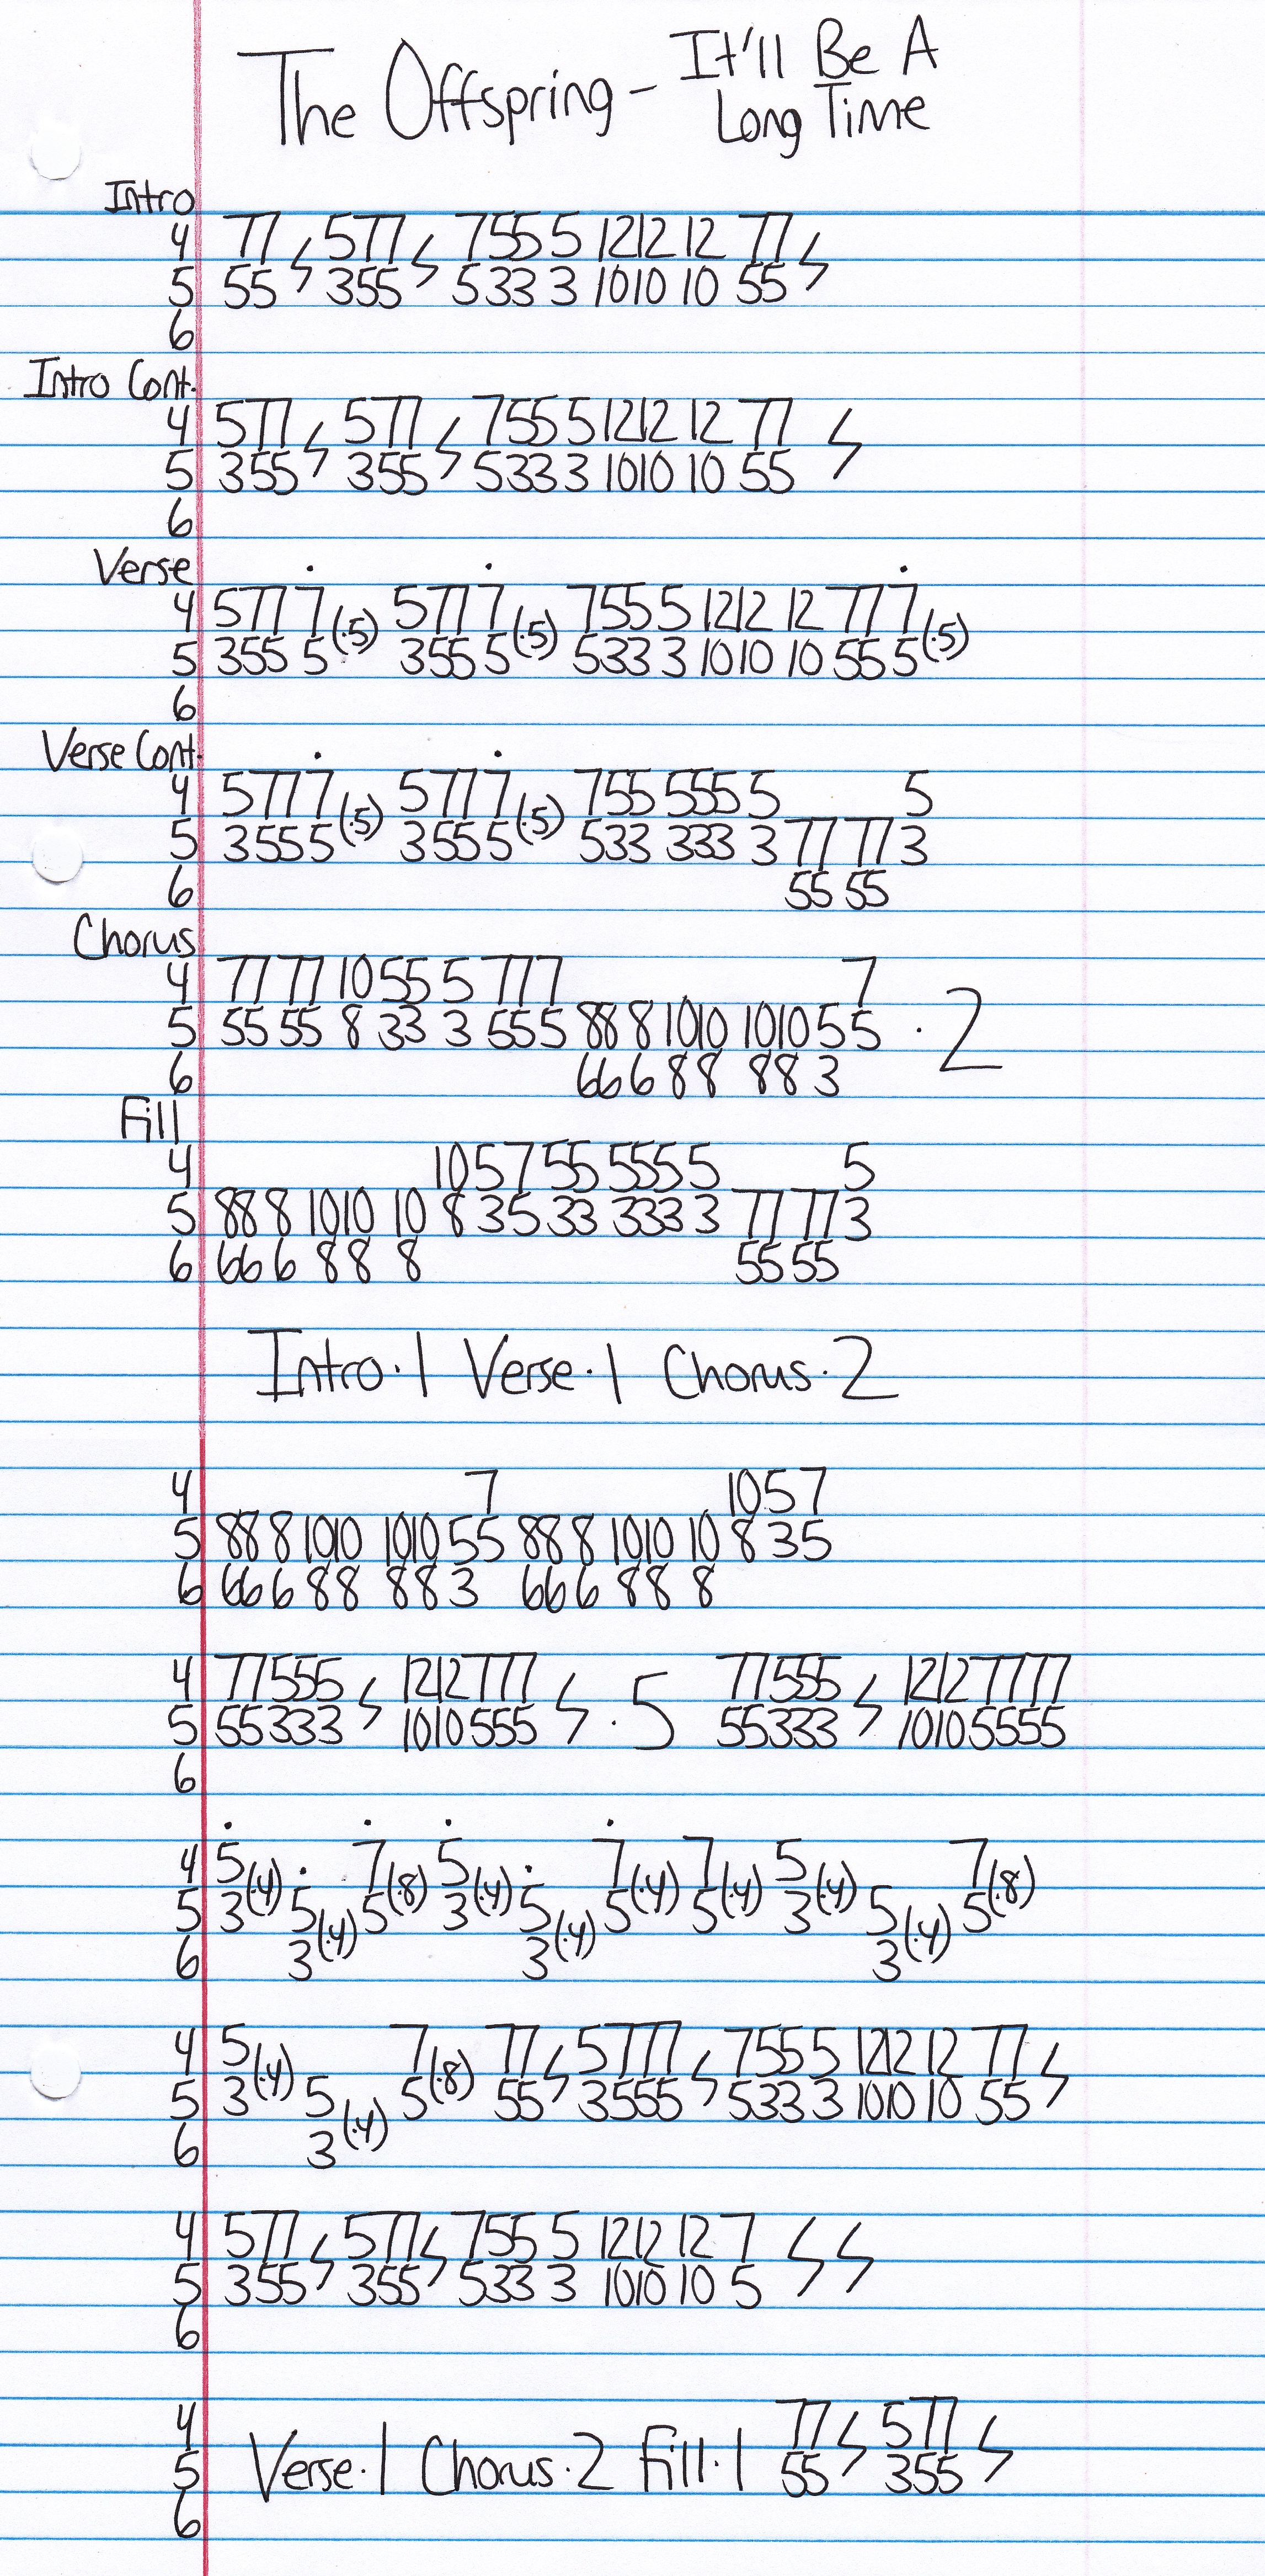 The Offspring - It'll Be A
Long Time
Intro
4 77 5 77 7 55 5 12 12 12 77
5 55 3 55 5 33 3 10 10 10 55
6
Intro Cont.
4 5 77 5 77 7 55 5 12 12 12 77
5 3 55 3 55 5 33 3 10 10 10 55
6
Verse
4 5 77 7 (.5) 5 77 7 (.5) 7 55 5 12 12 12 77 7 (.5)
5 3 55 5 3 55 5 5 33 3 10 10 10 55 5
6
Verse Cont.
4 5 77 7 (.5) 5 77 7 (.5) 7 55 555 5 5
5 3 55 5 3 55 5 5 33 333 3 77 77 3
6 55 55
Chorus
4 77 77 10 55 5 777 7
5 55 55 8 33 3 555 88 8 10 10 10 10 5 5 · 2
6 66 6 8 8 8 8 3
Fill
4 10 5 7 55 555 5 5
5 88 8 10 10 10 8 3 5 33 333 3 77 77 3
6 66 6 8 8 8 55 55
Intro · 1 Verse · 1 Chorus · 2
4 7 10 5 7
5 88 8 10 10 10 10 5 5 88 8 10 10 10 8 3 5
6 66 6 8 8 8 8 3 66 6 8 8 8
4 77 555 12 12 777 77 555 12 12 7777
5 55 333 10 10 555 · 5 55 333 10 10 5555
6
4 5 (.4) 7 (.8) 5 (.4) 7 (.4) 7 (.4) 5 (.4) 7 (.8)
5 3 5 (.4) 5 3 5 (.4) 5 5 3 5 (.4) 5
6 3 3 3
4 5 (.4) 7 (.8) 77 5 777 7 55 5 12 12 12 77
5 3 5 (.4) 5 55 3 555 5 33 3 10 10 10 55
6 3
4 5 77 5 77 7 55 5 12 12 12 7
5 3 55 3 55 5 33 3 10 10 10 5
6
4 77 5 77
5 Verse · 1 Chorus · 2 Fill · 1 55 3 55
6